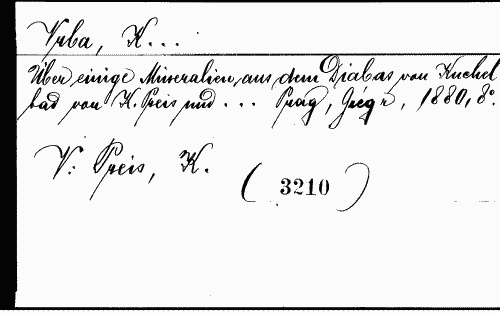 Vrba, K...
Über einige Mineralien aus dem Diabas von Kuchel
bad von K. Preis und ... Prag, Grégr, 1880, 8°.
V: Preis, K.
(3210)